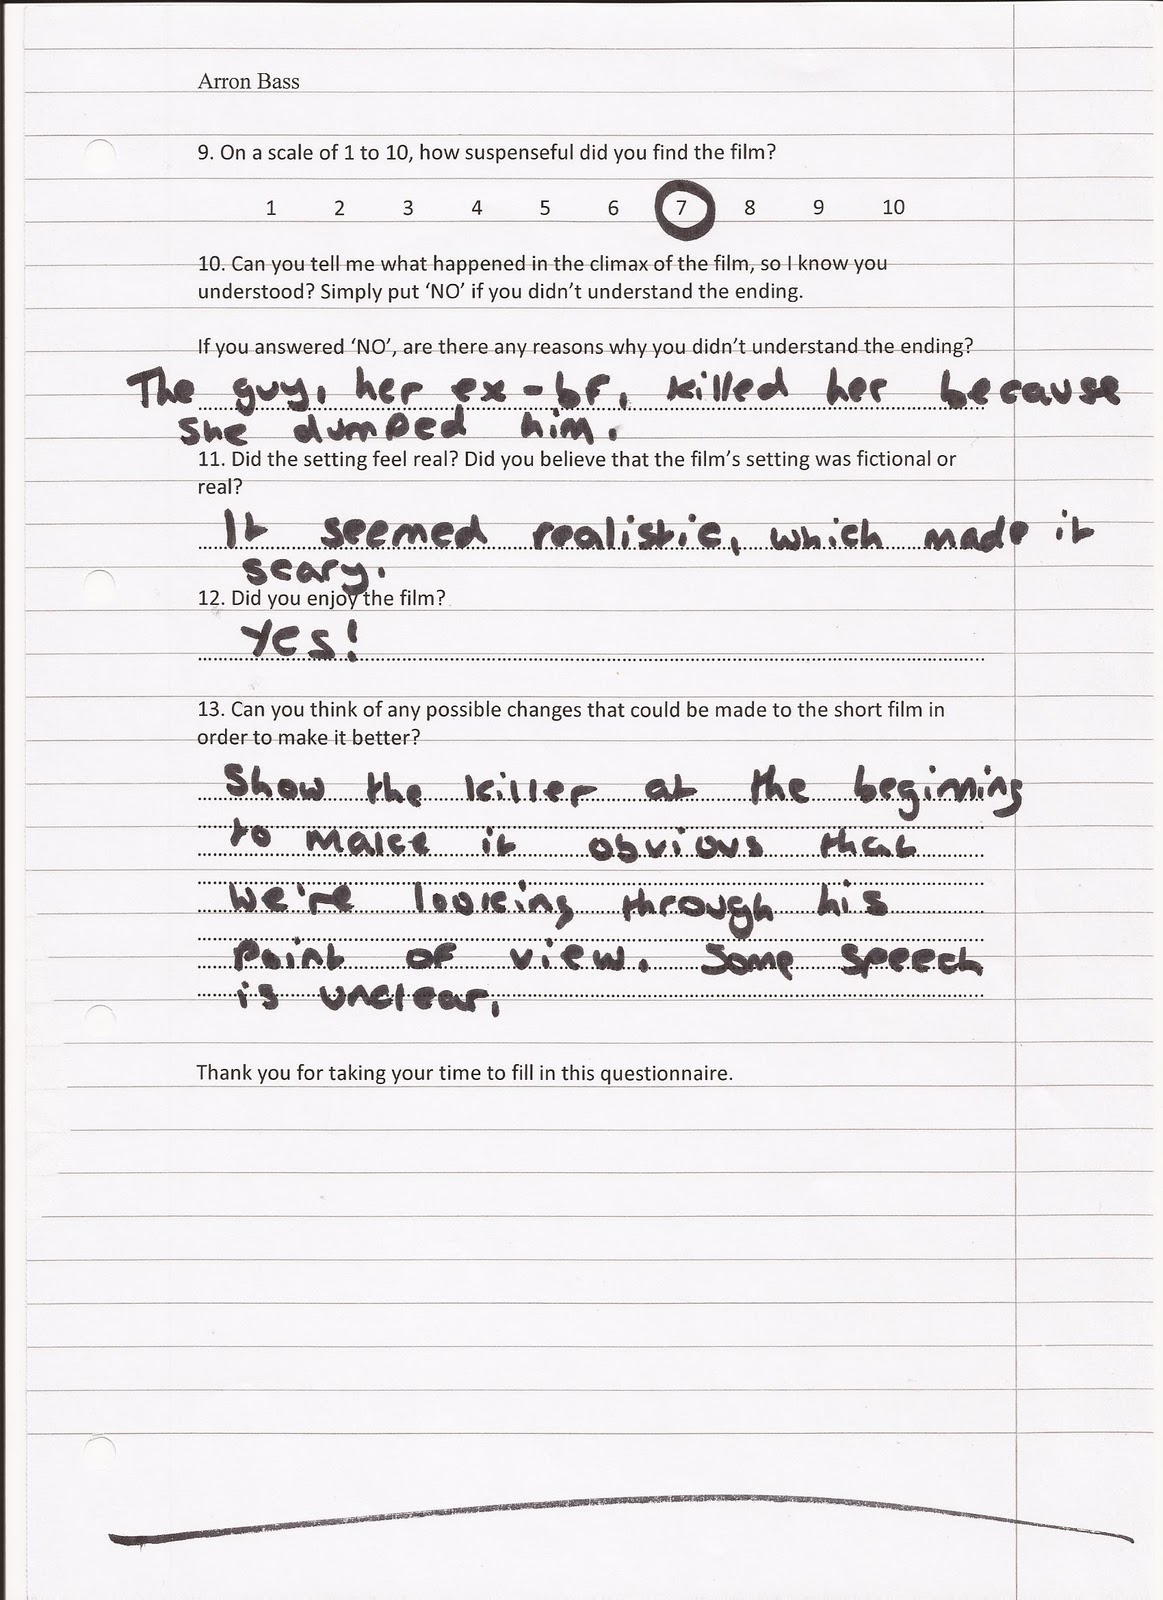 Arron Bass
9. On a scale of 1 to 10, how suspenseful did you find the film?
1 2 3 4 5 6 7 8 9 10
10. Can you tell me what happened in the climax of the film, so I know you
understood? Simply put ‘NO’ if you didn’t understand the ending.
If you answered ‘NO’, are there any reasons why you didn’t understand the ending?
The guy, her ex-bf, killed her because
she dumped him.
11. Did the setting feel real? Did you believe that the film’s setting was fictional or
real?
It seemed realistic, which made it
scary.
12. Did you enjoy the film?
Yes!
13. Can you think of any possible changes that could be made to the short film in
order to make it better?
Show the killer at the begining
to make it obvious that
we're looking through his
point of view. Some speech
is unclear.
Thank you for taking your time to fill in this questionnaire.